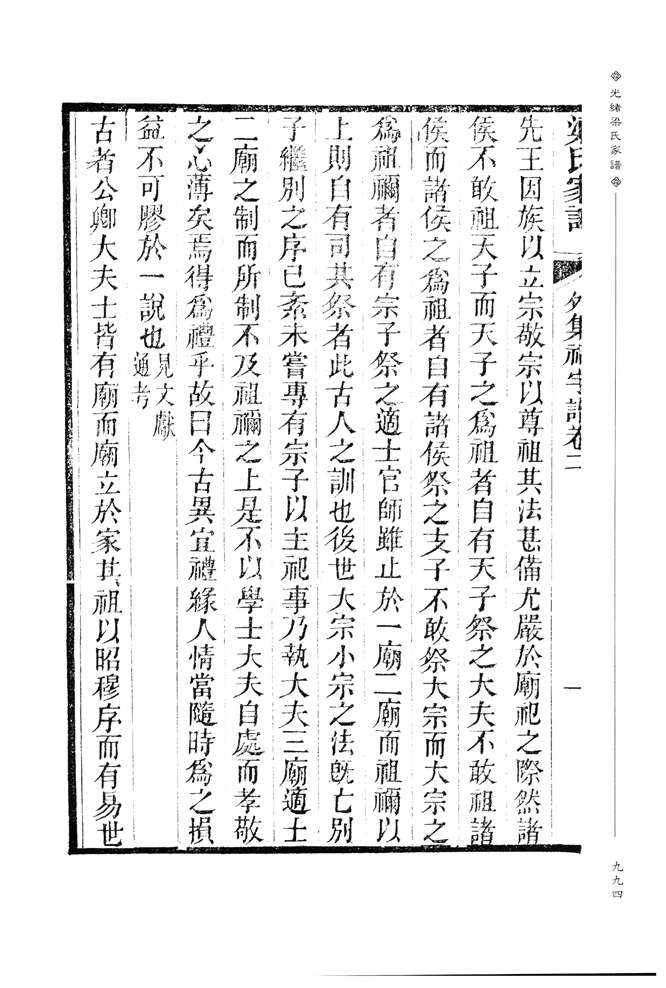 光緒梁氏家譜
九九四
梁氏家譜 外集祠宇譜卷二 一
先王因族以立宗敬宗以尊祖其法甚備尤嚴於廟祀之際然諸
侯不敢祖天子而天子之爲祖者自有天子祭之大夫不敢祖諸
侯而諸侯之爲祖者自有諸侯祭之支子不敢祭大宗而大宗之
爲祖禰者自有宗子祭之適士官師雖止於一廟二廟而祖禰以
上則自有司其祭者此古人之訓也後世大宗小宗之法旣亡別
子繼別之序已紊未嘗專有宗子以主祀事乃執大夫三廟適士
二廟之制而所制不及祖禰之上是不以學士大夫自處而孝敬
之心薄矣焉得爲禮乎故曰今古異宜禮緣人情當隨時爲之損
益不可膠於一說也見文獻
通考
古者公卿大夫士皆有廟而廟立於家其祖以昭穆序而有易世